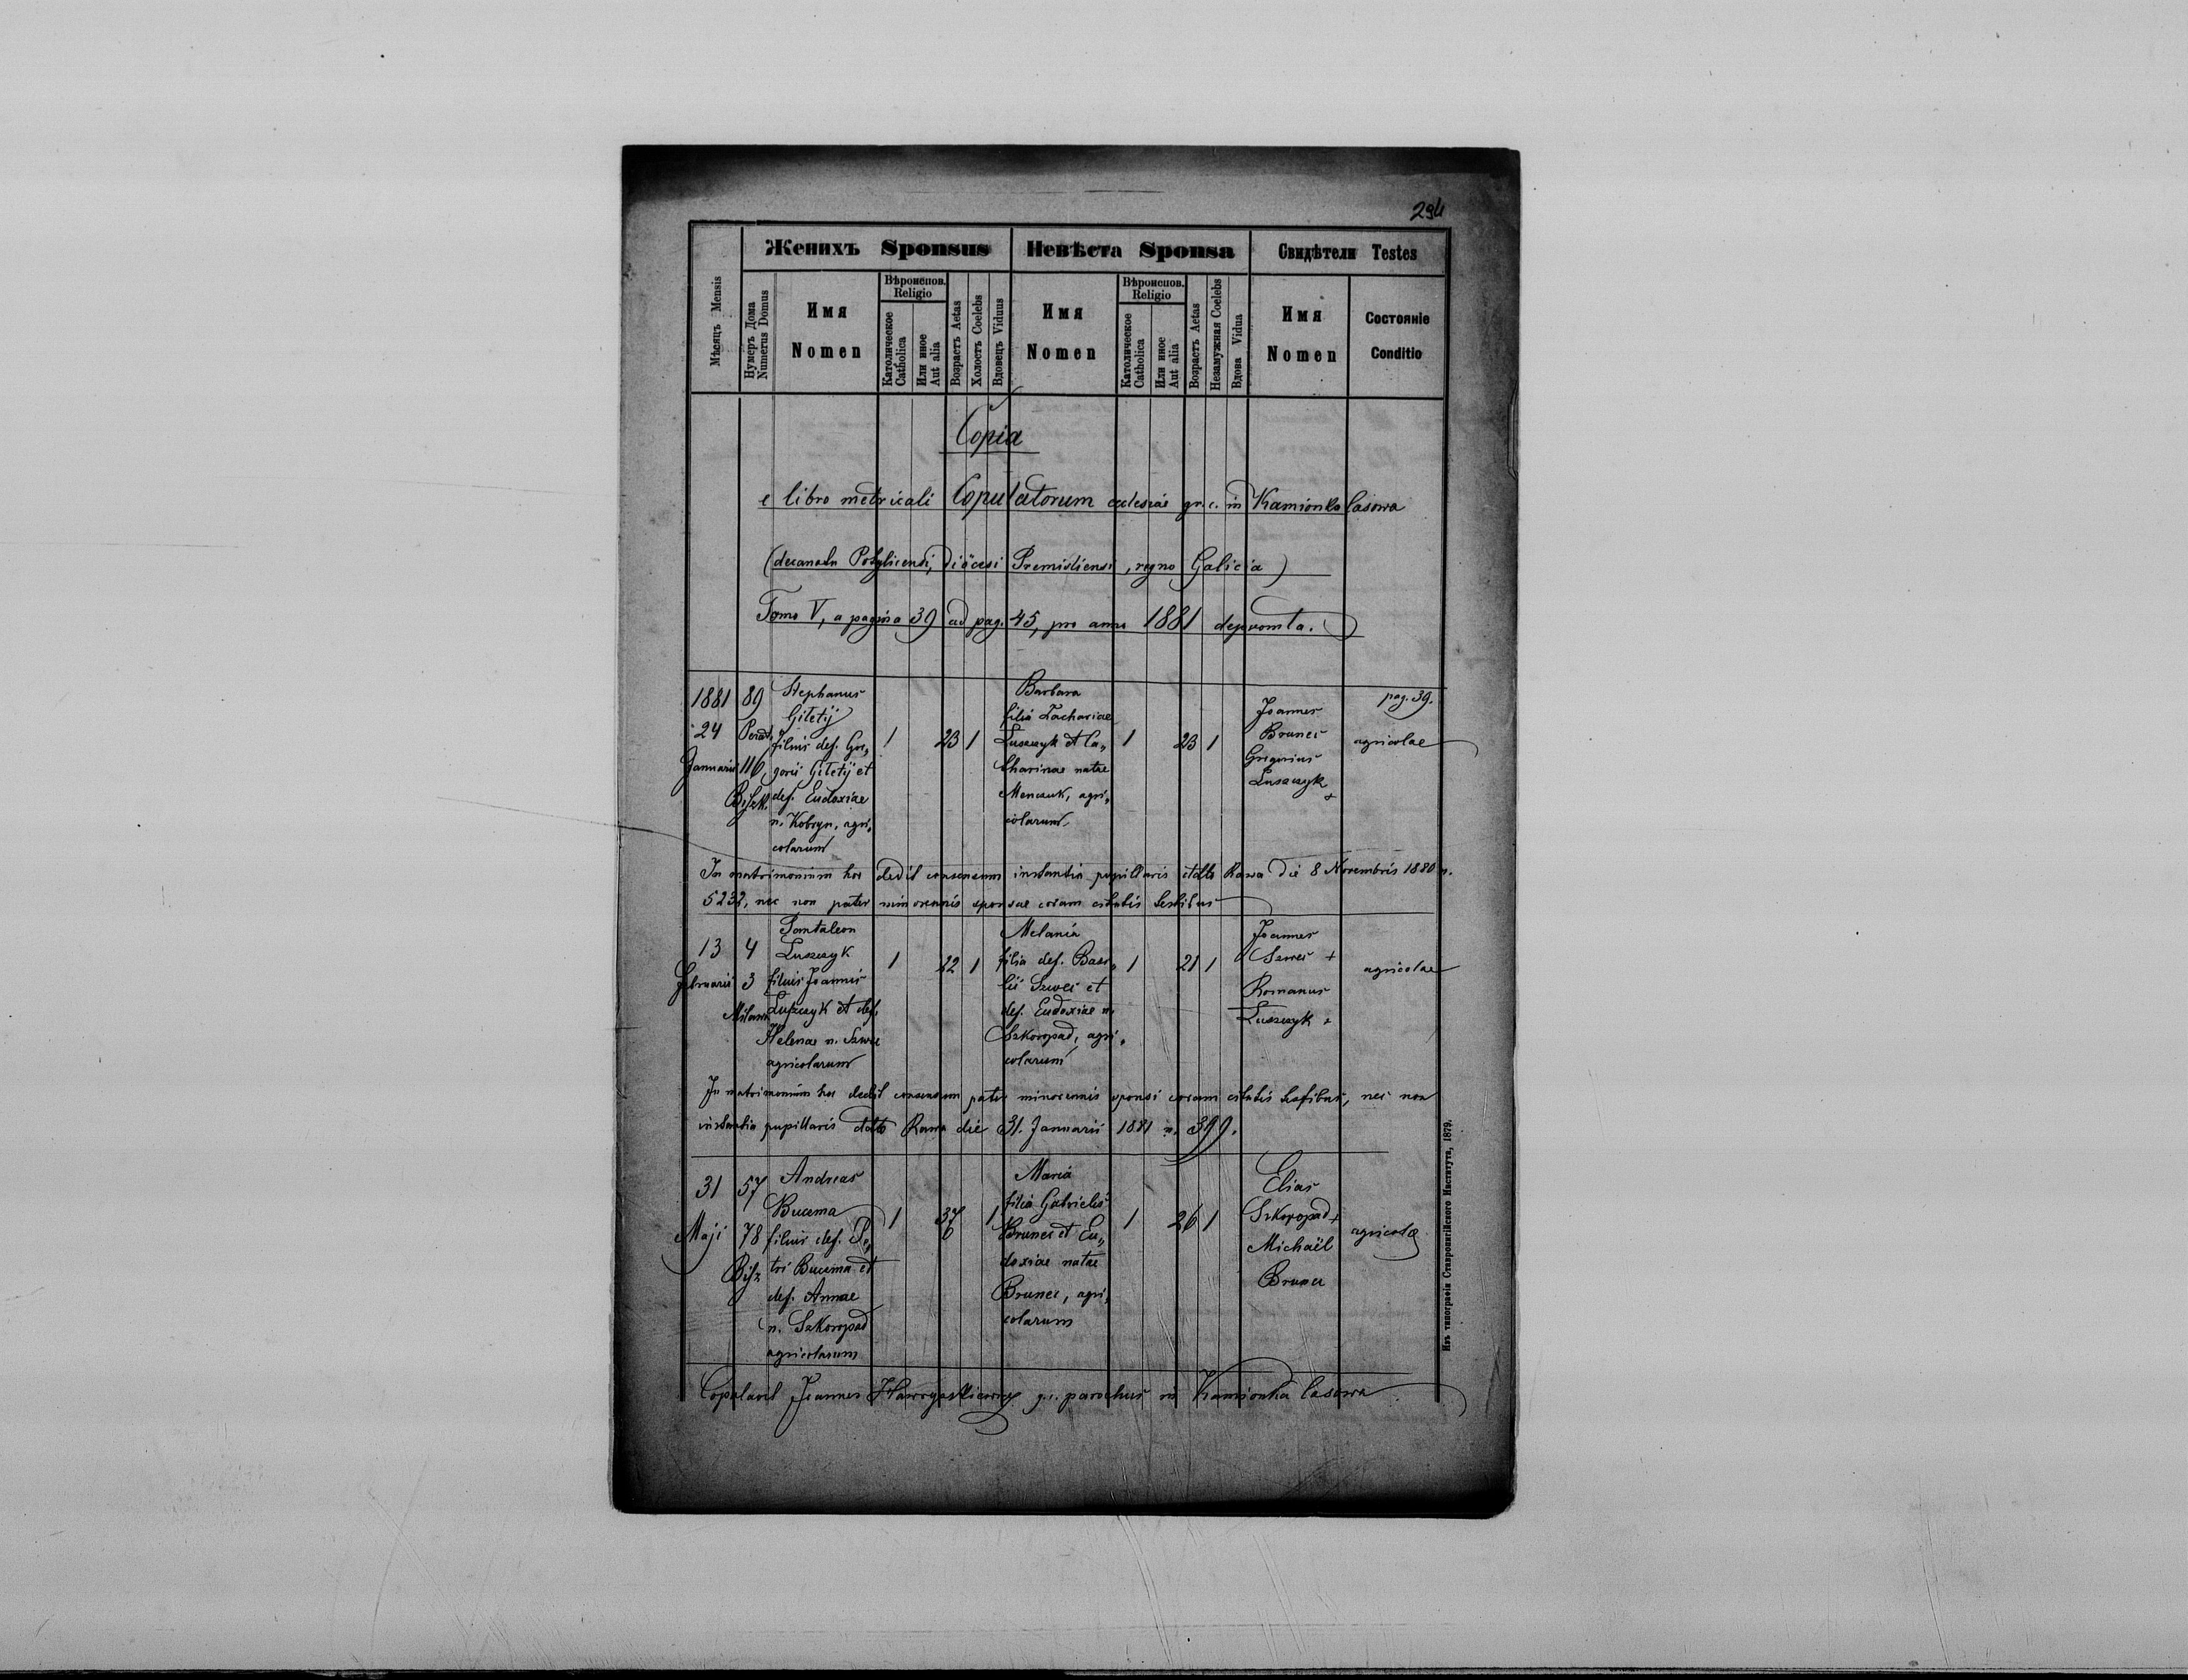 294
Женихъ Sponsus
Невѣста Sponsa
Свидѣтели Testes
Мѣсяцъ Mensis
Нумеръ Дома
Numerus Domus
Имя
Nomen
Вѣроиспов.
Religio
Католическое
Catholica
Или иное
Aut alia
Возрастъ Aetas
Холостъ Coelebs
Вдовецъ Viduus
Имя
Nomen
Вѣроиспов.
Religio
Католическое
Catholica
Или иное
Aut alia
Возрастъ Aetas
Незамужная Coelebs
Вдова Vidua
Имя
Nomen
Состояніе
Conditio
Copia
e libro metricali Copulatorum ecclesiae gr. c. in Kamionka lasowa
(decanatu Potylicensi, diöcesi Premisliensi, regno Galicia)
Tomo V, a pagina 39 ad pag. 45, pro anno 1881
1881
24
Januarii
89
116
Stephanus
Giletij
filius def. Gre„
gorii Giletij et
def. Eudoxiae
n. Kobryn, agri„
colarum
1
23
1
Barbara
filia Zachariae
Luszczyk et Ca„
tharinae natae
Menczuk, agri„
colarum
1
23
1
Joannes
Brunec
Grigorius
Luszczyk
+
pag. 39.
agricolae
In matrimonium hoc dedit consensum instantia pupillaris ddto Rawa die 8 Novembris 1880 n.
5232, nec non pater minorennis sponsae coram citatis testibus
13
Februarii
4
3
Pantaleon
Luszczyk
filius Joannis
Luszczyk et def.
Helenae n. Szwec
agricolarum
1
22
1
Melania
filia def. Basi„
lii Szwec et
def. Eudoxiae n.
Szkoropad, agri„
colarum
1
21
1
Joannes
Szwec +
Romanus
Luszczyk +
agricolae
In matrimonium hoc dedit consensum pater minorennis sponsi coram citatis testibus, nec non
instantia pupillaris ddto Rawa die 31. Januarii 1881 n. 399.
31
Maji
57
78
Andreas
Bucema
filius def. Pe„
tri Bucema et
def. Annae
n. Szkoropad
agricolarum
1
1
Maria
filia Gabrielis
Brunec et Eu„
doxiae natae
Brunec, agri„
colarum
1
26
1
Elias
Szkoropad +
Michaël
Brunec
agricolae
Copulavit Joannes gr. c. parochus in Kamionka lasowa
Изъ типографіи Ставропигійского Института, 1879.